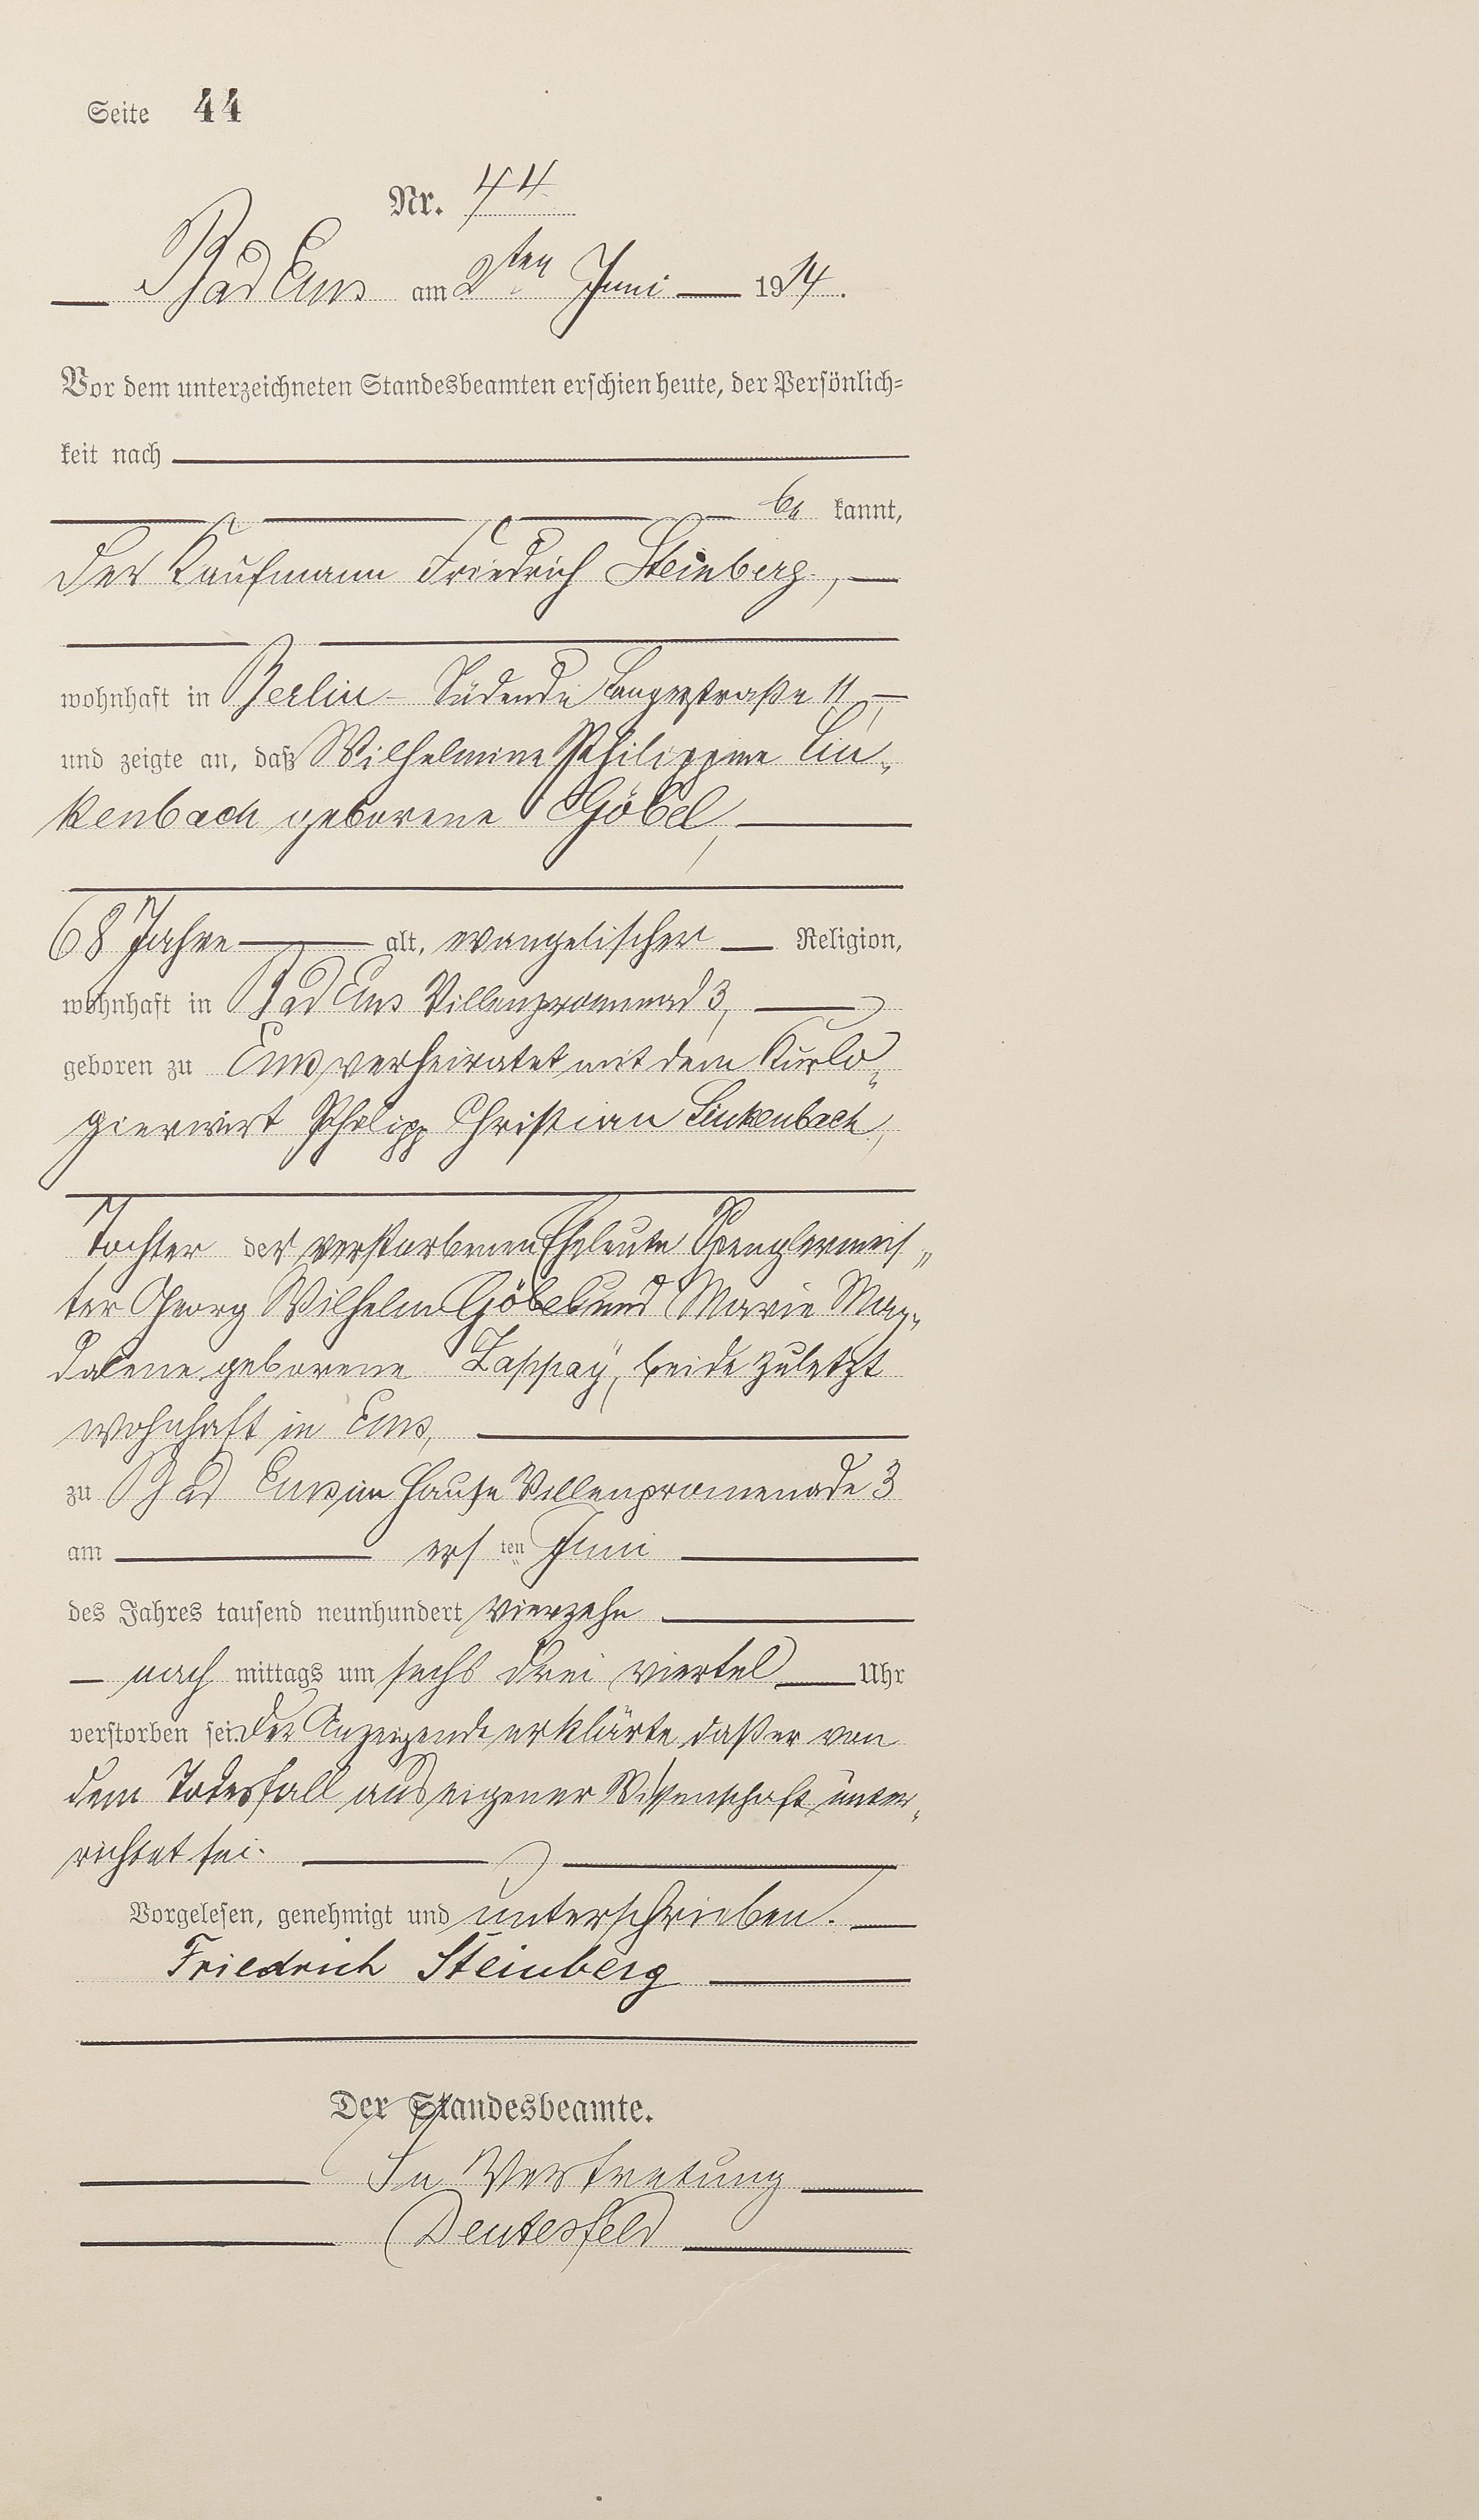 Seite 44
Nr. 44
Bad Ems am 2ten Juni 1914.
Vor dem unterzeichneten Standesbeamten erschien heute, der Persönlich=
keit nach
be kannt,
der Kaufmann Friedrich Steinberg,
wohnhaft in Berlin-Südende Langestraße 11,
und zeigte an, daß Wilhelmine Philippine Lin-
kenbach geborene Göbel,
68 Jahre alt, evangelischer Religion,
wohnhaft in Bad Ems Villenpromenad 3,
geboren zu Ems, verheiratet mit dem Kurlo-
gierwirt Philipp Christian Linkenbach,
Tochter der verstorbenen Eheleute Spenglermeis-
ter Georg Wilhelm Göbel und Marie Mag-
dalene geborene Lassay, beide zuletzt
wohnhaft in Ems,
zu Bad Ems im Hause Villenpromenade 3
am ersten Juni
des Jahres tausend neunhundert vierzehn
nach mittags um sechs drei viertel Uhr
verstorben sei. Der Anzeigende erklärte, daß er von
dem Todesfall aus eigener Wissenschaft unter-
richtet sei.
Vorgelesen, genehmigt und unterschrieben.
Friedrich Steinberg
Der Standesbeamte.
In Vertretung
Deutesfeld